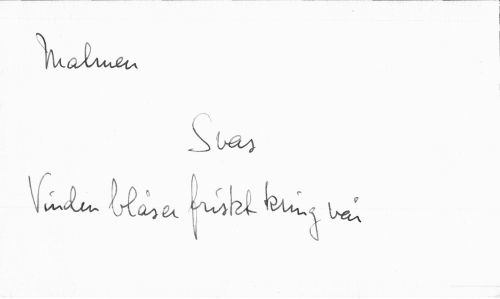 Malmen
Svas
Vinden blåser friskt kring vår